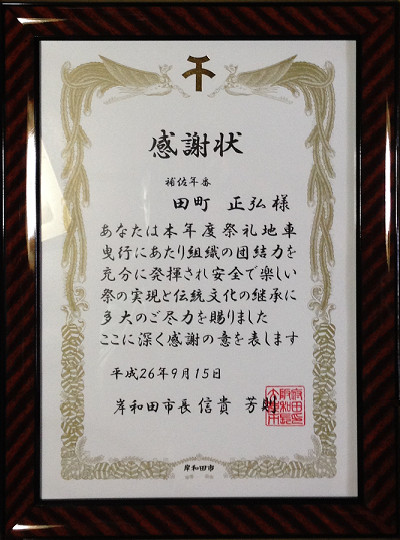 感謝状
補佐年番
田町 正弘 様
あなたは本年度祭礼地車
曳行にあたり組織の団結力を
充分に発揮され安全で楽しい
祭の実現と伝統文化の継承に
多大のご尽力を賜りました
ここに深く感謝の意を表します
平成26年9月15日
岸和田市長 信貴 芳則
岸和田市